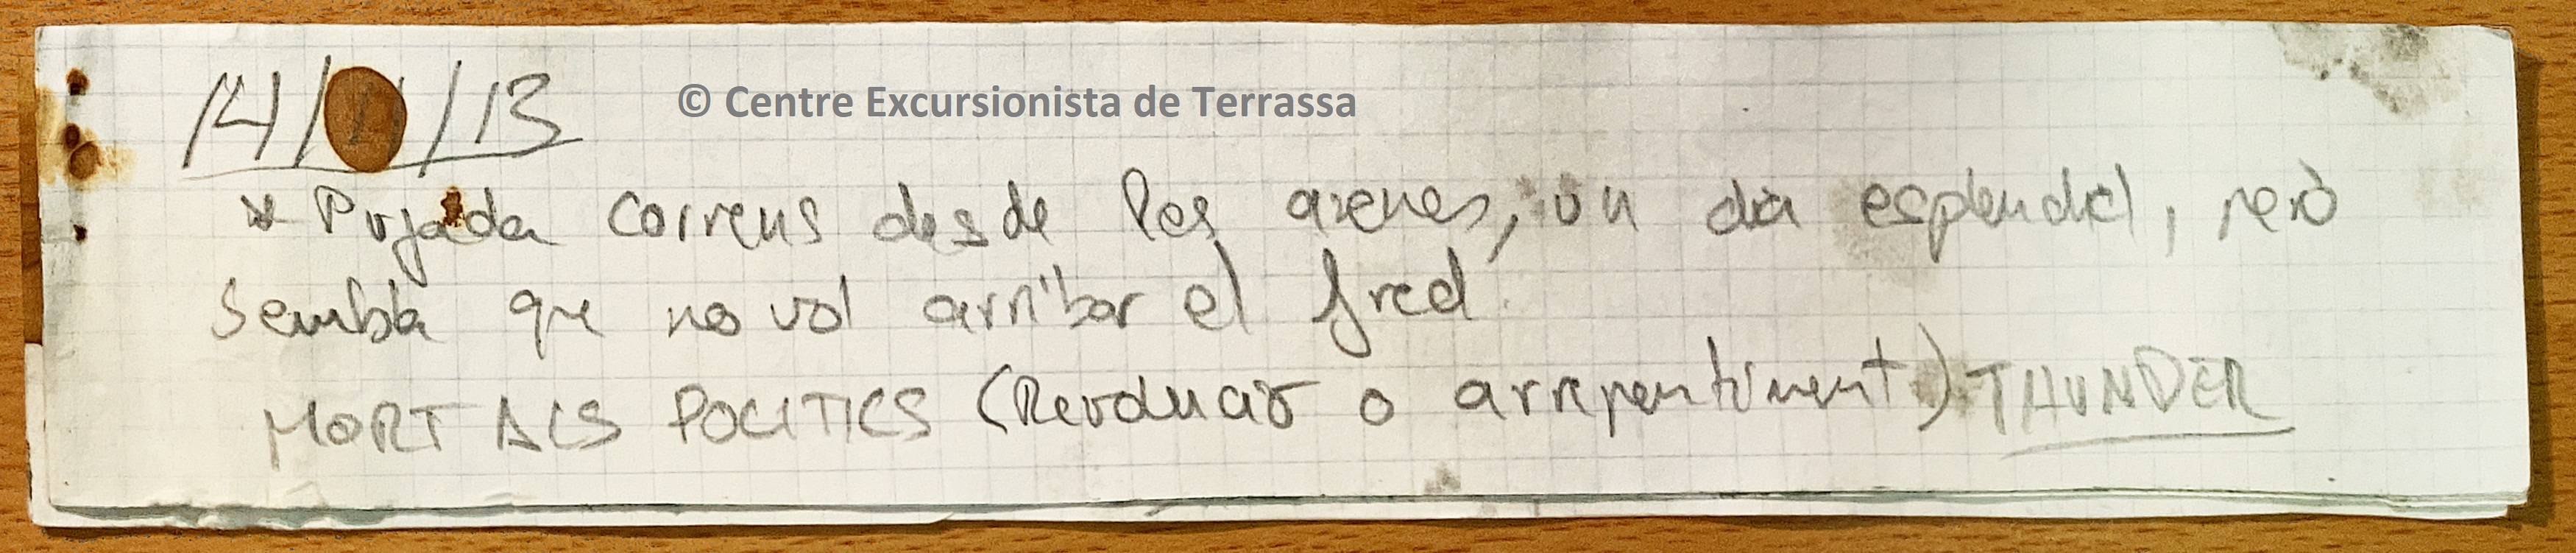 14/11/13
© Centre Excursionista de Terrassa
* Pujada correns desde les arenes, un dia esplendid, però
sembla que no vol arribar el fred.
MORT ALS POLITICS (Revolució o arrepentiment) THUNDER